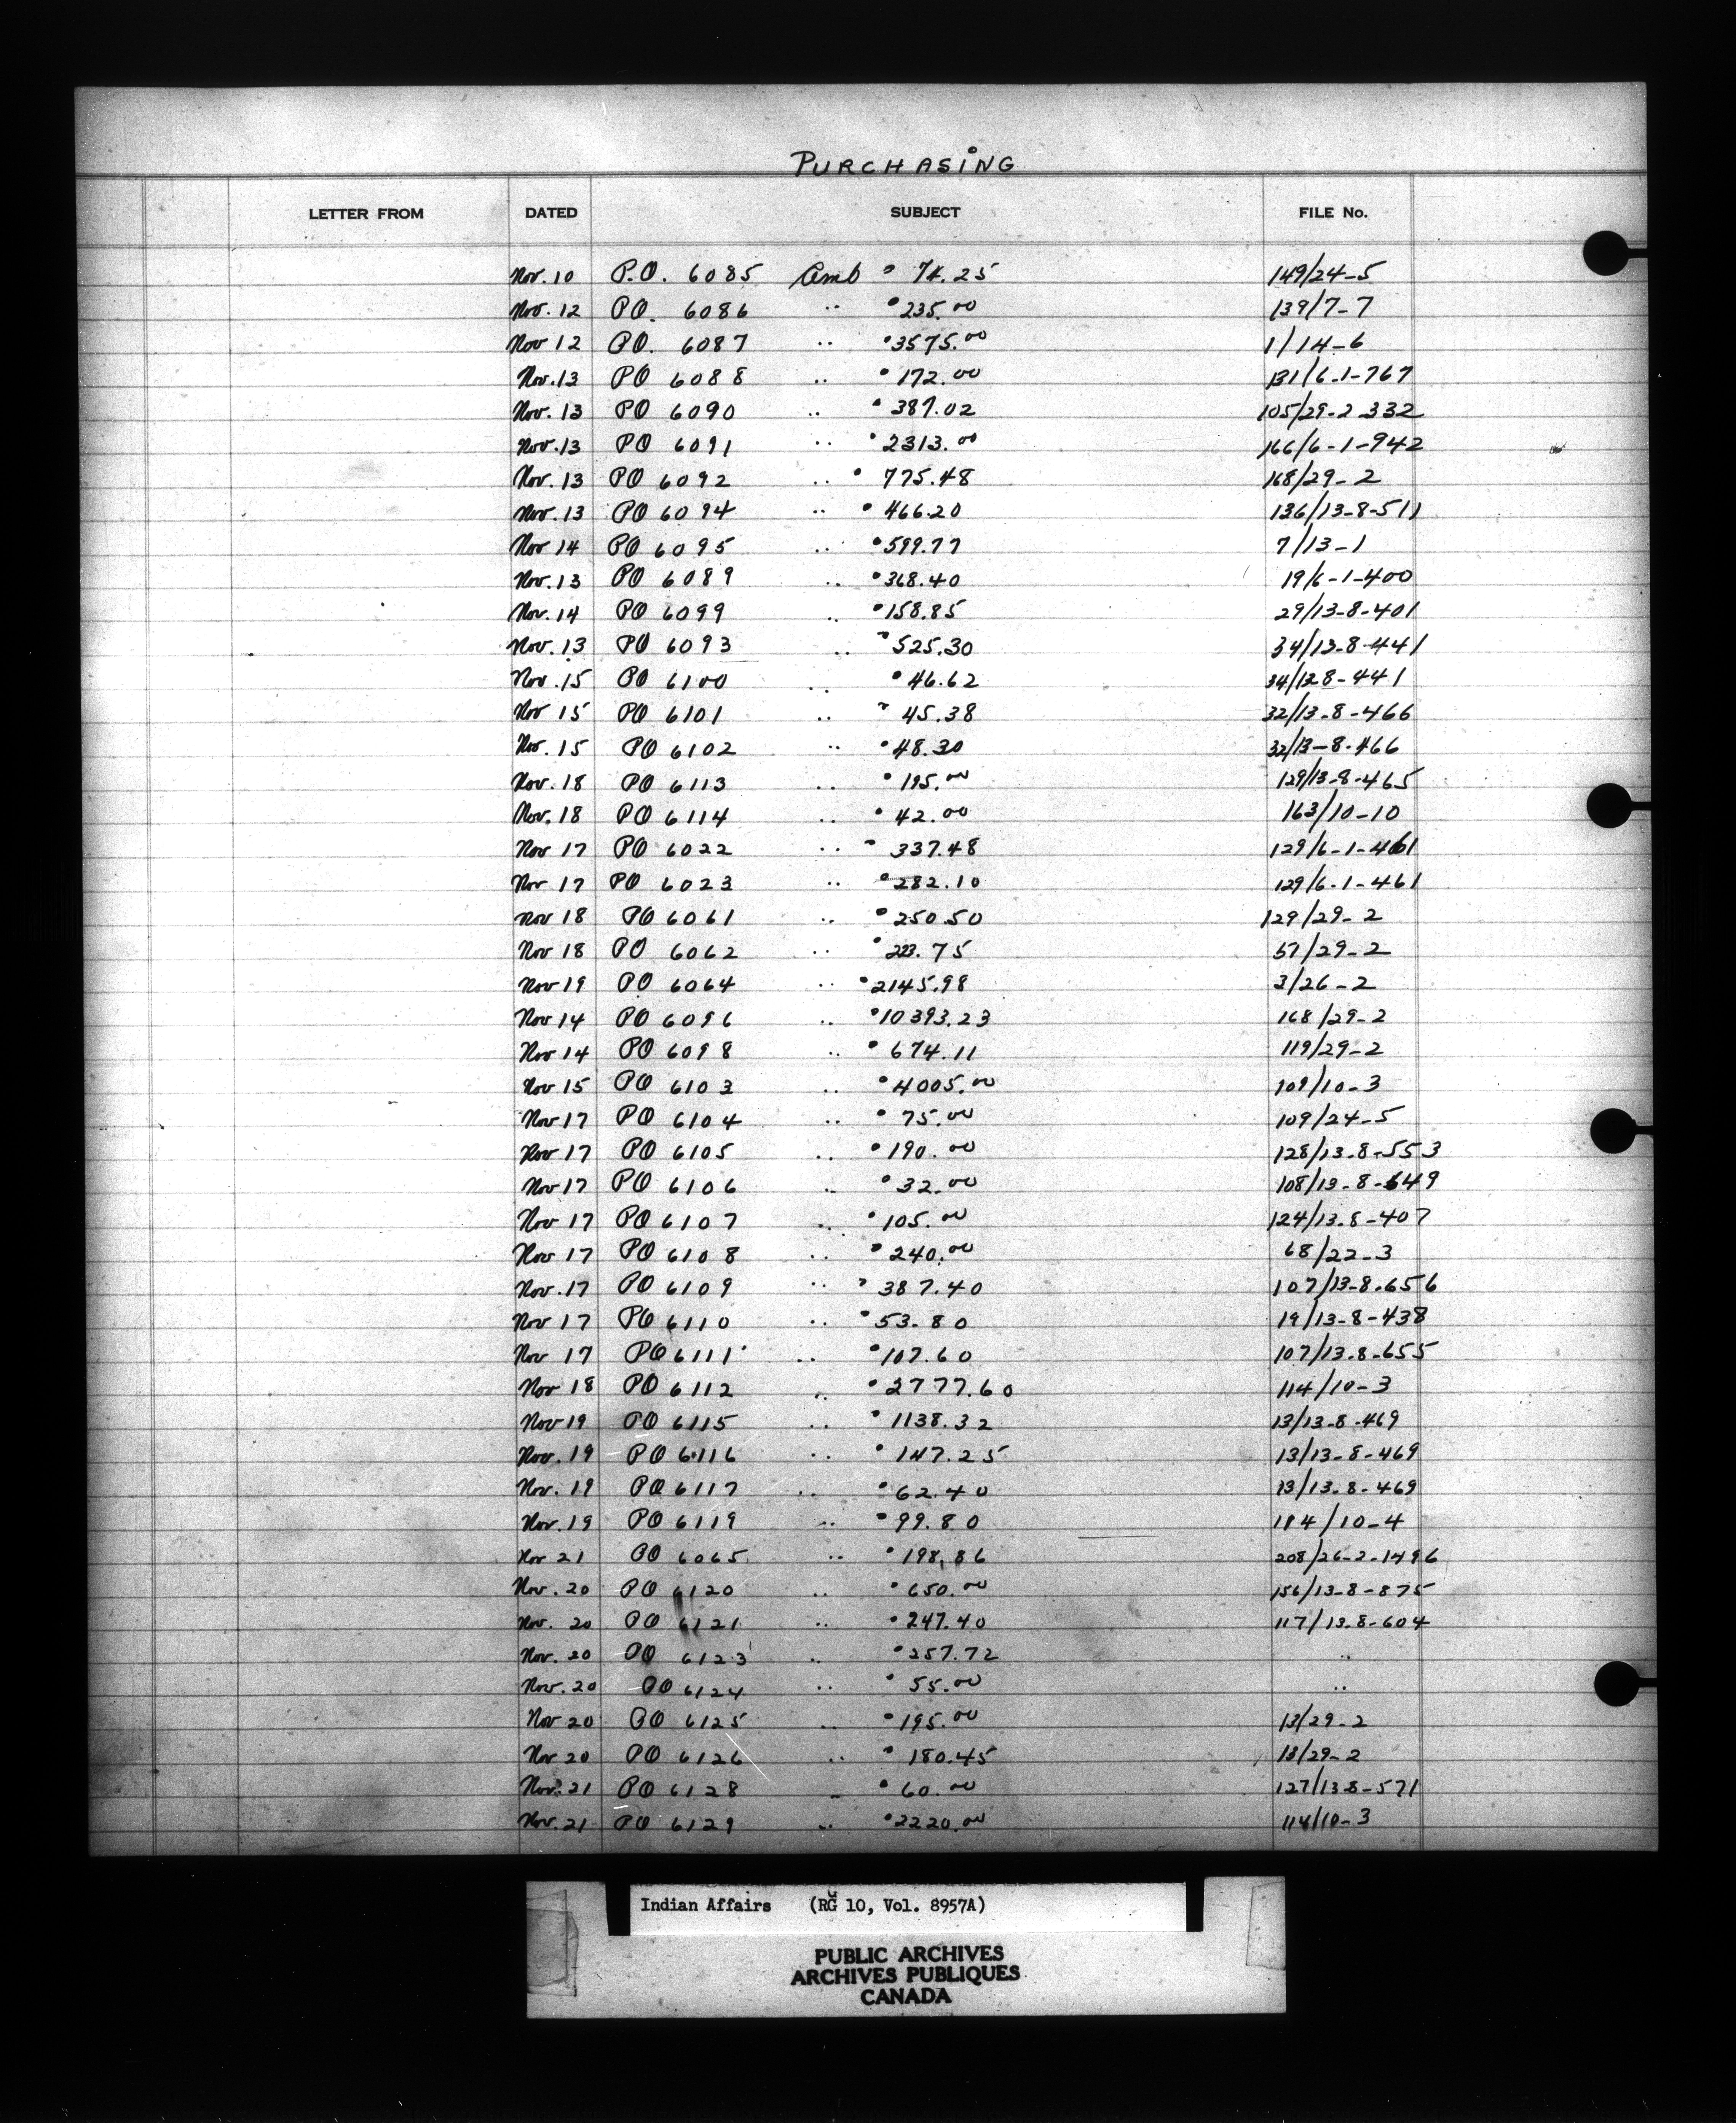 PURCHASING
LETTER FROM DATED SUBJECT FILE No.
Nov. 10 P.O. 6085 Amt 74.25 149/24-5
Nov. 12 PO. 6086 " 235.00 139/7-7
Nov 12 PO. 6087 " 3575.00 1/14-6
Nov. 13 PO 6088 " 172.00 131/6-1-767
Nov. 13 PO 6090 " 387.02 105/29-2-332
Nov. 13 PO 6091 " 2313.00 166/6-1-942
Nov. 13 PO 6092 " 775.48 168/29-2
Nov. 13 PO 6094 " 466.20 136/13-8-511
Nov 14 PO 6095 " 599.77 7/13-1
Nov. 13 PO 6089 " 368.40 19/6-1-400
Nov. 14 PO 6099 " 158.85 29/13-8-401
Nov. 13 PO 6093 " 525.30 34/13-8-441
Nov. 15 PO 6100 " 46.62 34/138-441
Nov 15 PO 6101 " 45.38 32/13-8-466
Nov. 15 PO 6102 " 48.30 32/13-8-466
Nov. 18 PO 6113 " 195.00 129/13-8-465
Nov. 18 PO 6114 " 42.00 163/10-10
Nov 17 PO 6022 " 337.48 129/6-1-461
Nov 17 PO 6023 " 282.10 129/6-1-461
Nov 18 PO 6061 " 250.50 129/29-2
Nov 18 PO 6062 " 223.75 57/29-2
Nov 19 PO 6064 " 2145.98 3/26-2
Nov 14 PO 6096 " 10393.23 168/29-2
Nov 14 PO 6098 " 674.11 119/29-2
Nov 15 PO 6103 " 4005.00 109/10-3
Nov 17 PO 6104 " 75.00 109/24-5
Nov 17 PO 6105 " 190.00 128/13-8-553
Nov 17 PO 6106 " 32.00 108/13-8-649
Nov 17 PO 6107 " 105.00 124/13-8-407
Nov 17 PO 6108 " 240.00 68/22-3
Nov. 17 PO 6109 " 387.40 107/13-8-656
Nov 17 PO 6110 " 53.80 19/13-8-438
Nov 17 PO 6111 " 107.60 107/13-8-655
Nov 18 PO 6112 " 2777.60 114/10-3
Nov 19 PO 6115 " 1138.32 13/13-8-469
Nov. 19 PO 6116 " 147.25 13/13-8-469
Nov. 19 PO 6117 " 62.40 13/13-8-469
Nov. 19 PO 6119 " 99.80 114/10-4
Nov 21 PO 6065 " 198.86 208/26-2-1496
Nov. 20 PO 6120 " 650.00 156/13-8-875
Nov. 20 PO 6121 " 247.40 117/13-8-604
Nov. 20 PO 6123 " 257.72 "
Nov. 20 PO 6124 " 55.00 "
Nov 20 PO 6125 " 195.00 13/29-2
Nov 20 PO 6126 " 180.45 13/29-2
Nov. 21 PO 6128 " 60.00 127/138-571
Nov. 21 PO 6129 " 2220.00 114/10-3
Indian Affairs (RG 10, Vol. 8957A)
PUBLIC ARCHIVES
ARCHIVES PUBLIQUES
CANADA